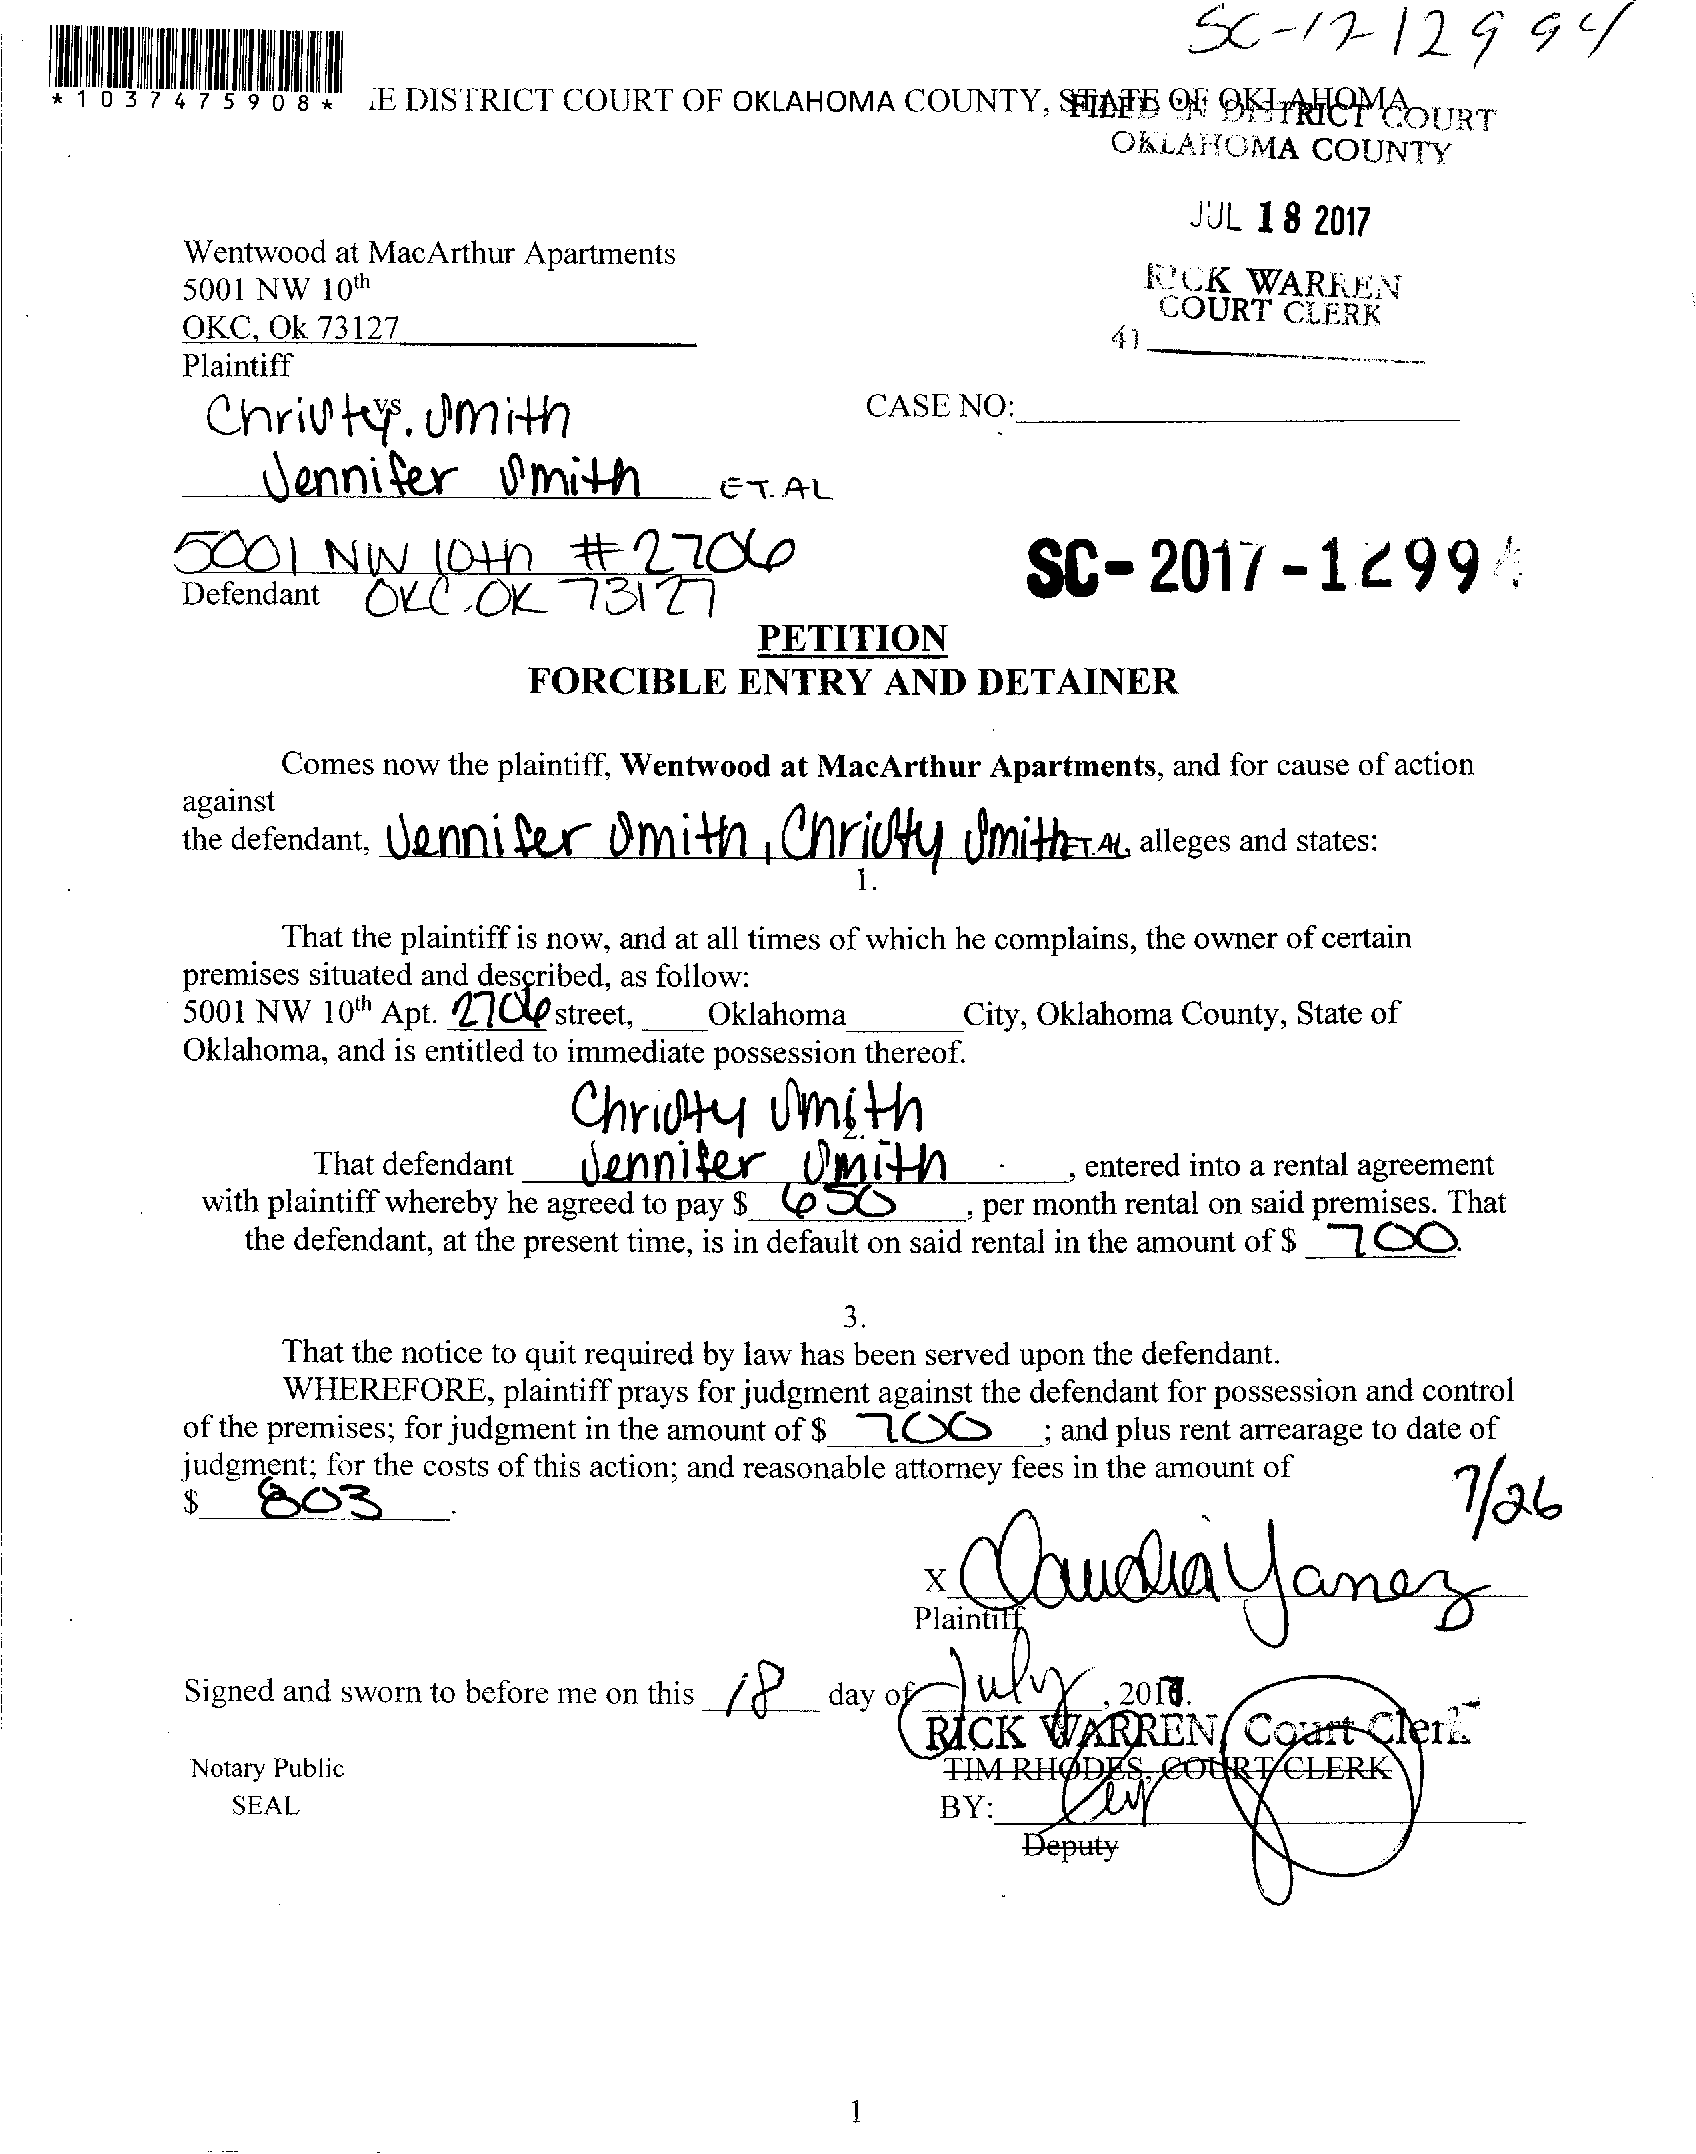 SC-17-12994
*1037475908*
E DISTRICT COURT OF OKLAHOMA COUNTY, STATE OF OKLAHOMA
FILED IN DISTRICT COURT
OKLAHOMA COUNTY
JUL 18 2017
Wentwood at MacArthur Apartments
5001 NW 10th
OKC, Ok 73127
Plaintiff
RICK WARREN
COURT CLERK
41
vs.
Christy Smith
CASE NO:
Jennifer Smith ET. AL
5001 NW 10th #2706
Defendant OKC. OK 73127
SC-2017-1299
PETITION
FORCIBLE ENTRY AND DETAINER
Comes now the plaintiff, Wentwood at MacArthur Apartments, and for cause of action
against
the defendant, Jennifer Smith, Christy Smith ET. AL, alleges and states:
1.
That the plaintiff is now, and at all times of which he complains, the owner of certain
premises situated and described, as follow:
5001 NW 10th Apt. 2706 street, Oklahoma City, Oklahoma County, State of
Oklahoma, and is entitled to immediate possession thereof.
Christy Smith
2.
That defendant Jennifer Smith, entered into a rental agreement
with plaintiff whereby he agreed to pay $ 650, per month rental on said premises. That
the defendant, at the present time, is in default on said rental in the amount of $ 700.
3.
That the notice to quit required by law has been served upon the defendant.
WHEREFORE, plaintiff prays for judgment against the defendant for possession and control
of the premises; for judgment in the amount of $ 700; and plus rent arrearage to date of
judgment; for the costs of this action; and reasonable attorney fees in the amount of
$ 803.
7/26
x Claudia Yanez
Plaintiff
Signed and sworn to before me on this 18 day of July, 2017.
RICK WARREN, Court Clerk
Notary Public
TIM RHODES, COURT CLERK
SEAL
BY:
Deputy
1